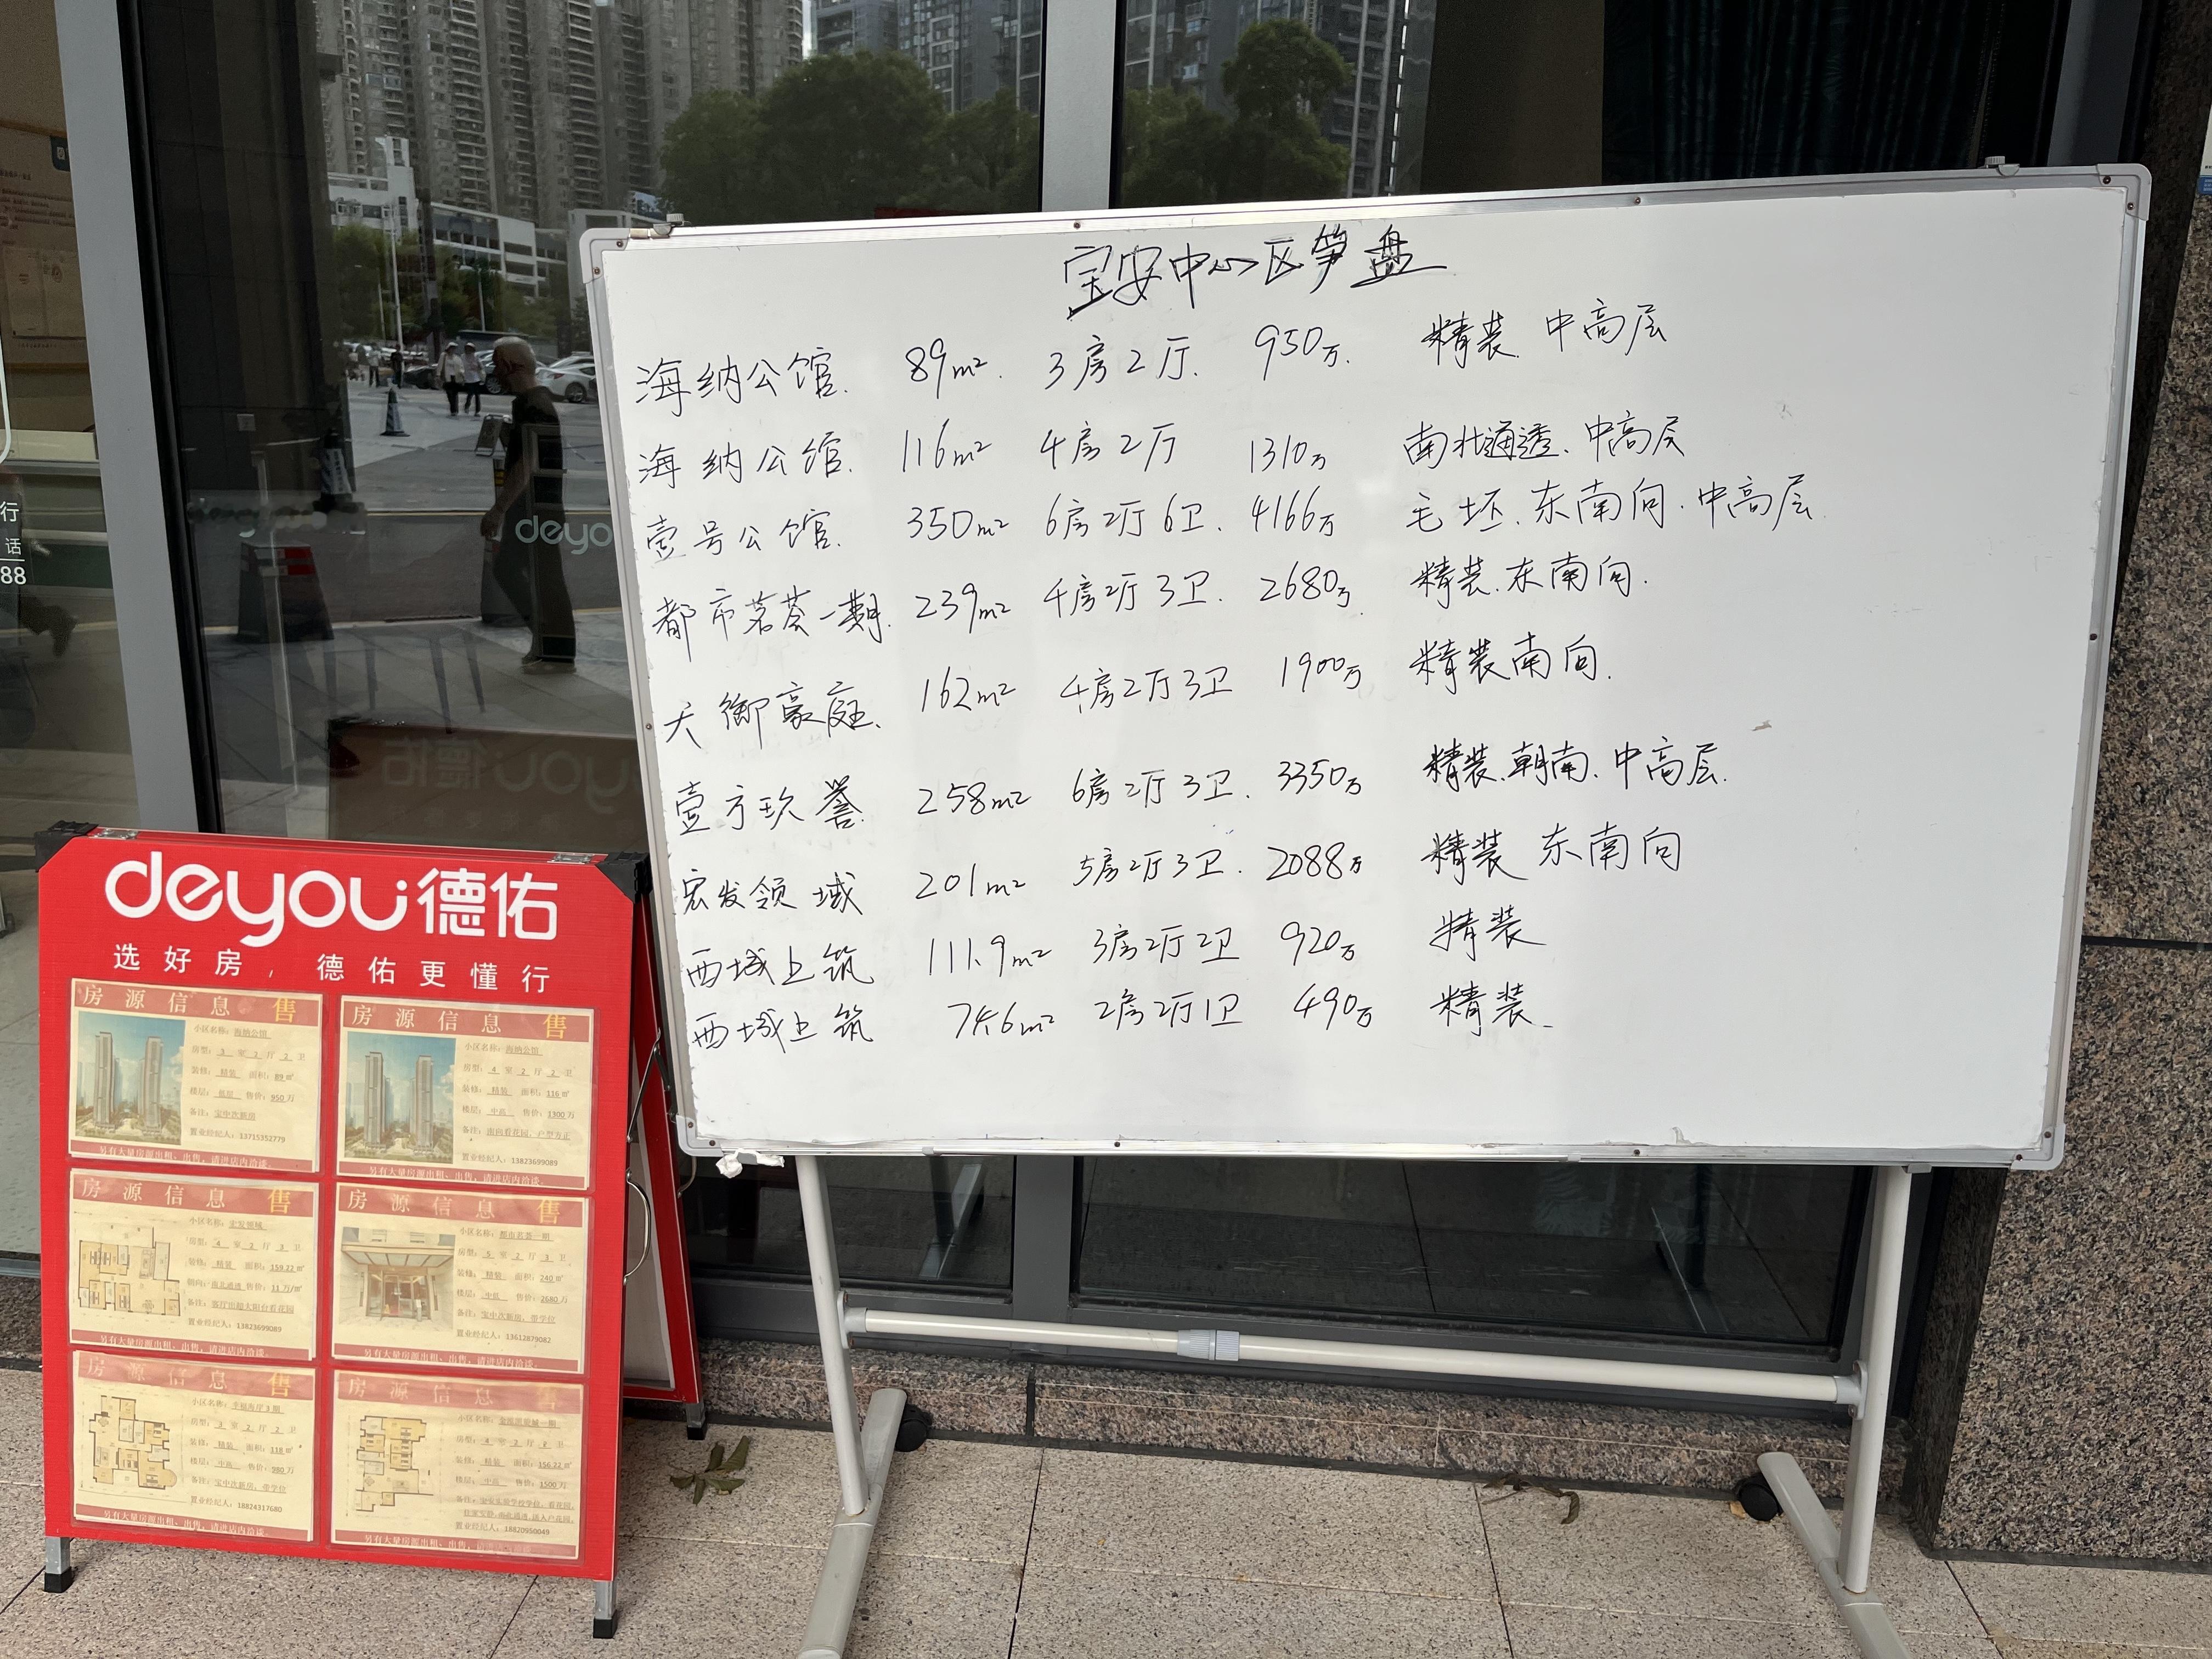 宝安中心区笋盘
海纳公馆. 89m². 3房2厅. 950万. 精装. 中高层
海纳公馆. 116m² 4房2厅 1310万 南北通透. 中高层
壹号公馆. 350m² 6房2厅6卫. 4166万 毛坯. 东南向. 中高层.
都市茗荟一期. 239m² 4房2厅3卫. 2680万 精装. 东南向.
天御豪庭. 162m² 4房2厅3卫 1900万 精装南向.
壹方玖誉. 258m² 6房2厅3卫. 3350万 精装. 朝南. 中高层.
宏发领域 201m² 5房2厅3卫. 2088万 精装 东南向
西城上筑 111.9m² 3房2厅2卫 920万 精装
西城上筑 m² 2房2厅1卫 490万 精装.
deyou德佑
选好房,德佑更懂行
房源信息 售
小区名称:海纳公馆
房型:3室2厅2卫
装修:精装 面积:89㎡
楼层:低层 售价:950万
备注:宝中次新房
置业经纪人:13715352779
另有大量房源出租、出售,请进店内洽谈。
房源信息 售
小区名称:海纳公馆
房型:4室2厅2卫
装修:精装 面积:116㎡
楼层:中高 售价:1300万
备注:南向看花园,户型方正
置业经纪人:13823699089
另有大量房源出租、出售,请进店内洽谈。
房源信息 售
小区名称:宏发领域
房型:4室2厅3卫
装修:精装 面积:159.22㎡
朝向:南北通透 售价:11万/㎡
备注:客厅出超大阳台看花园
置业经纪人:13823699089
另有大量房源出租、出售,请进店内洽谈。
房源信息 售
小区名称:都市茗荟一期
房型:5室2厅3卫
装修:精装 面积:240㎡
楼层:中高 售价:2680万
备注:宝中次新房、带学位
置业经纪人:13612879082
另有大量房源出租、出售,请进店内洽谈。
房源信息 售
小区名称:幸福海岸3期
房型:3室2厅2卫
装修:精装 面积:118㎡
楼层:中高 售价:980万
备注:宝中次新房、带学位
置业经纪人:18824317680
另有大量房源出租、出售,请进店内洽谈。
房源信息 售
小区名称:
房型:4室2厅2卫
装修:精装 面积:156.22㎡
楼层:中高 售价:1500万
置业经纪人:18820950049
另有大量房源出租、出售,请进店内洽谈。
行
话
88
deyo